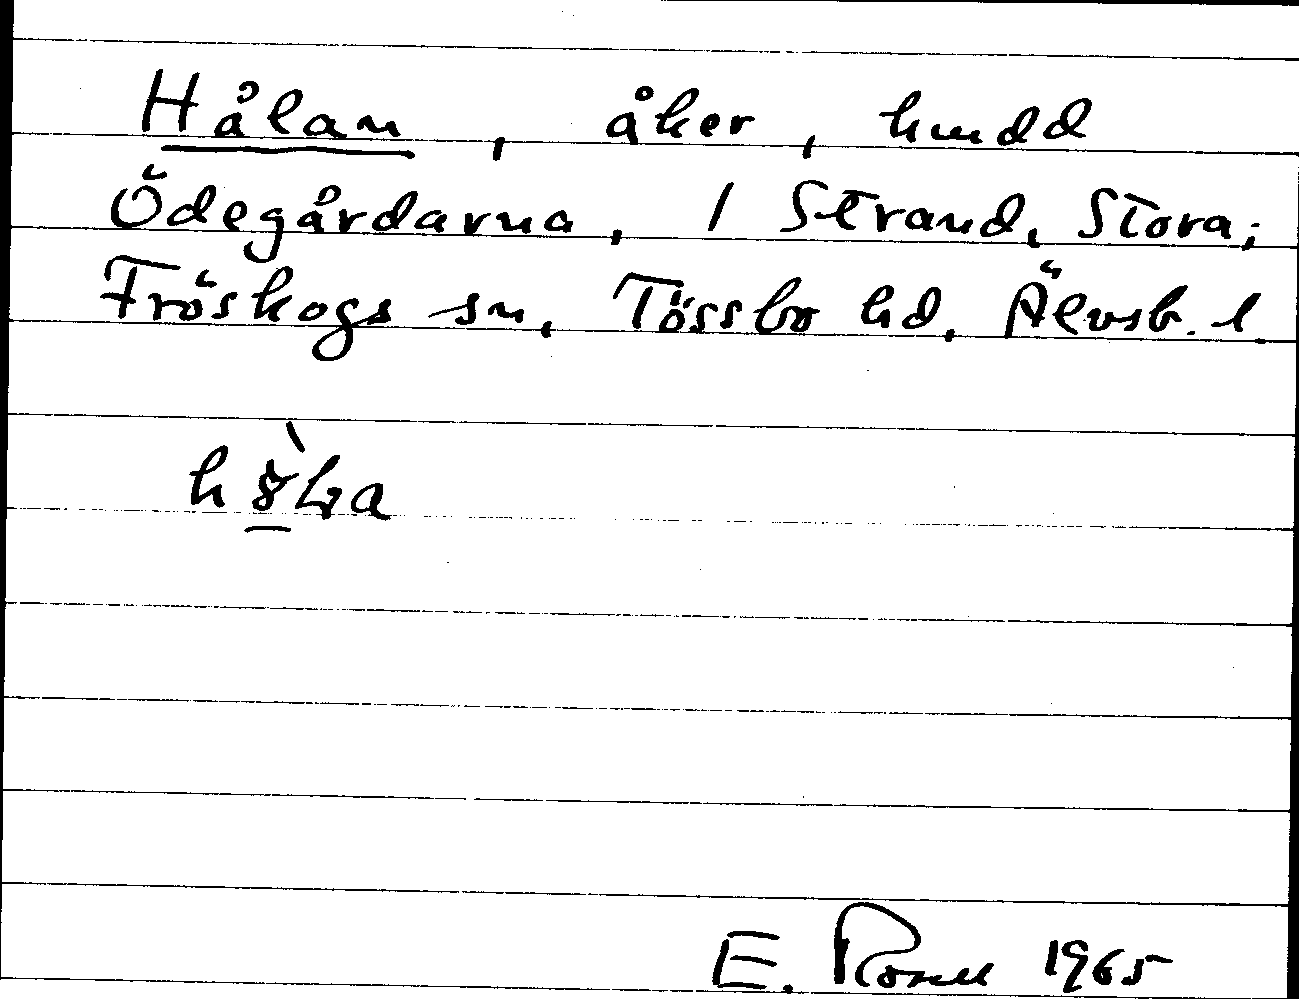 Hålan, åker, hmdd
Ödegårdarna, 1 Strand, Stora;
Fröskogs sn, Tössbo hd, Älvsb. l.
E. Rosell 1965